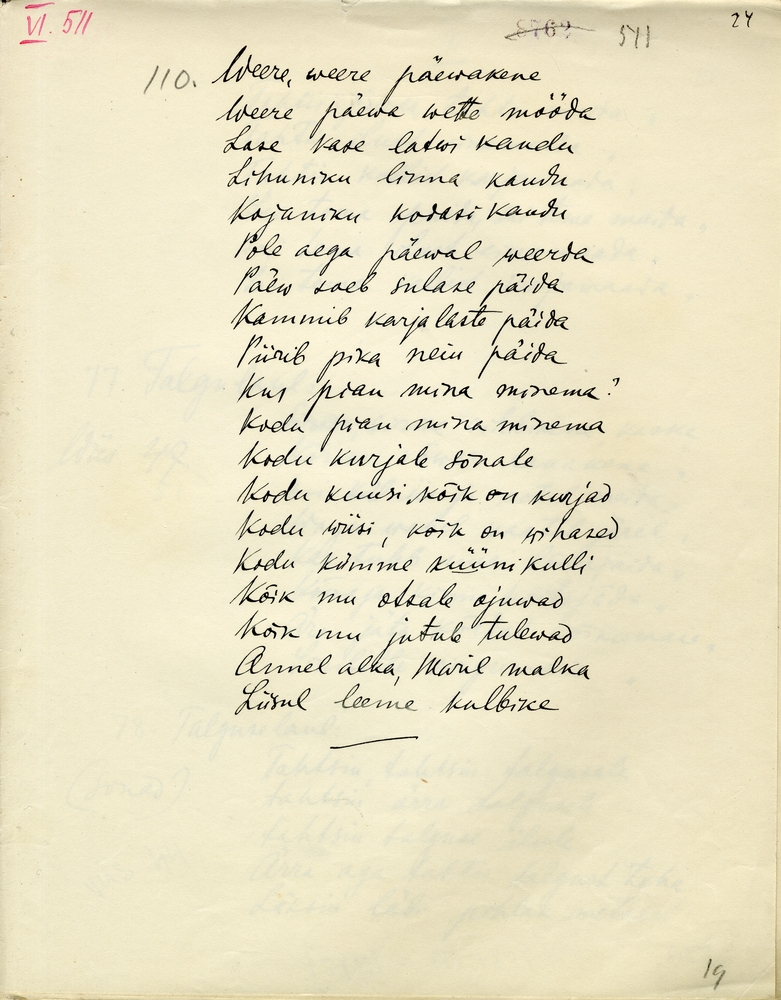 VI. 511
8762 511
24
110. Weere, weere päewakene
Weere päewa wette mööda
Lase kase latwi kaudu
Lihuniku linna kaudu
Kojaniku kodasi kaudu
Pole aega päewal weerda
Päew soeb sulase päida
Kammib karjalaste päida
Piirib pika neiu päida
Kus pian mina minema?
Kodu pian mina minema
Kodu kurjale sõnale
Kodu kuusi, kõik on kurjad
Kodu wiisi, kõik on wihased
Kodu kümme küüni kulli
Kõik mu otsale ojuwad
Kõik mu jutule tulewad
Annel alka, Maril malka
Liisul leeme kulbike
19